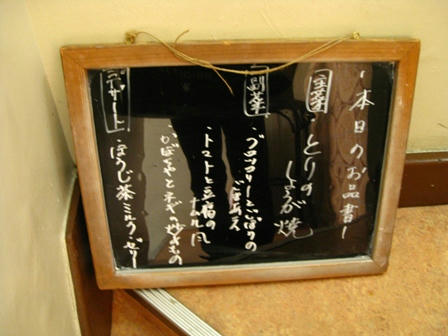 本日のお品書
主菜
・とりの
しょうが焼
副菜
・ブロッコリーとじゃこの
ごまあえ
・トマトと豆腐の
ナムル風
・かぼちゃとネギの炒めもの
デザート
・ほうじ茶ミルクゼリー